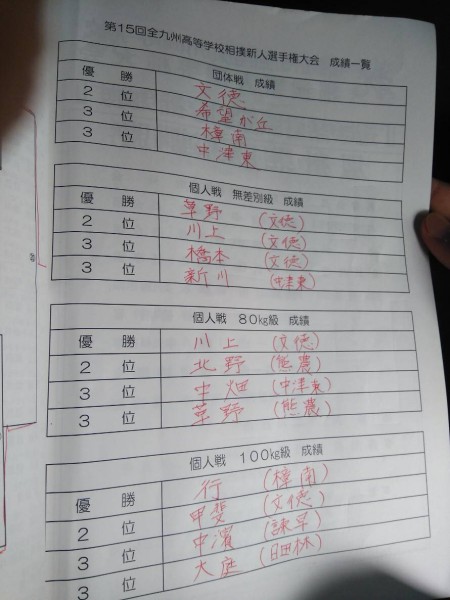 第15回全九州高等学校相撲新人選手権大会 成績一覧
団体戦 成績
優勝 文徳
2位 希望が丘
3位 樟南
3位 中津東
個人戦 無差別級 成績
優勝 草野 (文徳)
2位 川上 (文徳)
3位 橋本 (文徳)
3位 新川 (中津東)
個人戦 80kg級 成績
優勝 川上 (文徳)
2位 北野 (熊農)
3位 中畑 (中津東)
3位 草野 (熊農)
個人戦 100kg級 成績
優勝 行 (樟南)
2位 甲斐 (文徳)
3位 中濱 (諫早)
3位 大庭 (日田林)